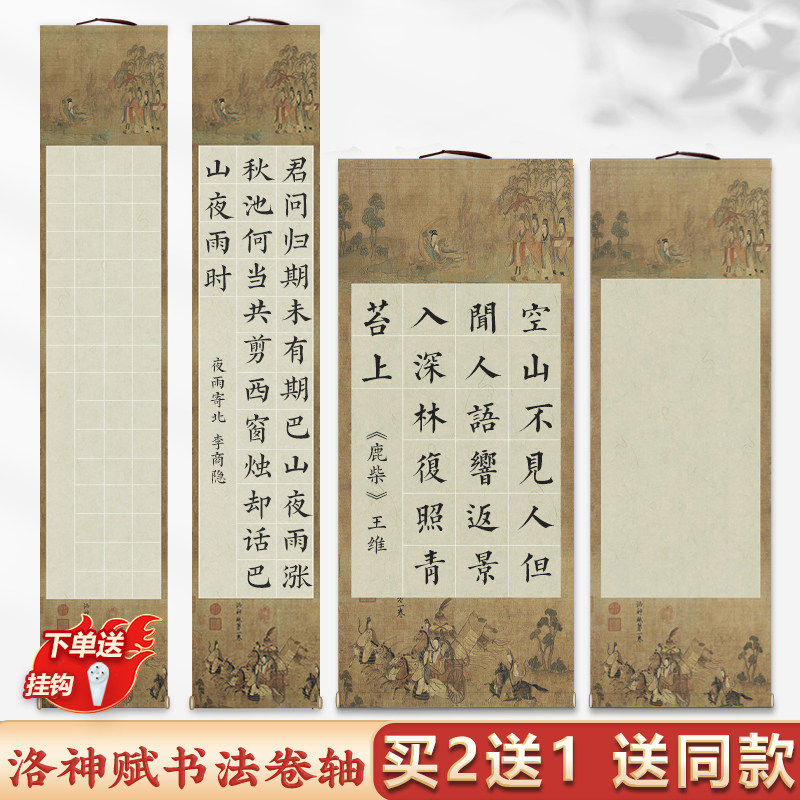 君问归期未有期巴山夜雨涨
秋池何当共剪西窗烛却话巴
山夜雨时
夜雨寄北 李商隐
洛神賦第一卷
空山不見人但
聞人語響返景
入深林復照青
苔上
《鹿柴》王维
洛神賦第一卷
下单送
挂钩
洛神赋书法卷轴
买2送1 送同款